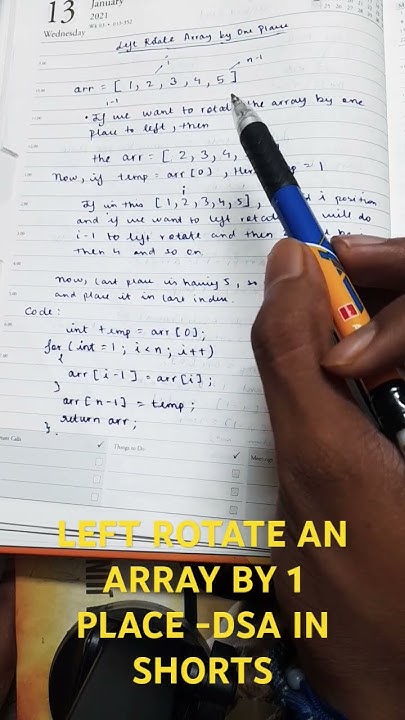 13
January
2021
Wednesday
Wk 03 • 013-352
Left Rotate Array by One Place
i
n-1
arr = [ 1, 2, 3, 4, 5 ]
i-1
• If we want to rotate the array by one
place to left, then
the arr = [ 2, 3, 4,
Now, if temp = arr[0], = 1
i
If in this [1, 2, 3, 4, 5], position
and if we want to left rotate will do
i-1 to left rotate and then
then 4 and so on.
Now, last place is having 5, so
and place it in last index.
Code:
int temp = arr[0];
for (int = 1; i<n; i++)
{
arr[i-1] = arr[i];
}
arr[n-1] = temp;
return arr;
}.
Calls
Things to Do
LEFT ROTATE AN
ARRAY BY 1
PLACE -DSA IN
SHORTS